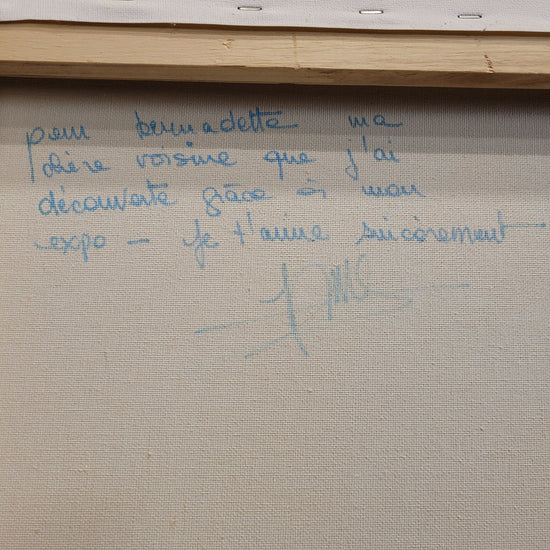 pour bernadette ma
chère voisine que j'ai
découverte grâce à mon
expo - je t'aime sincèrement